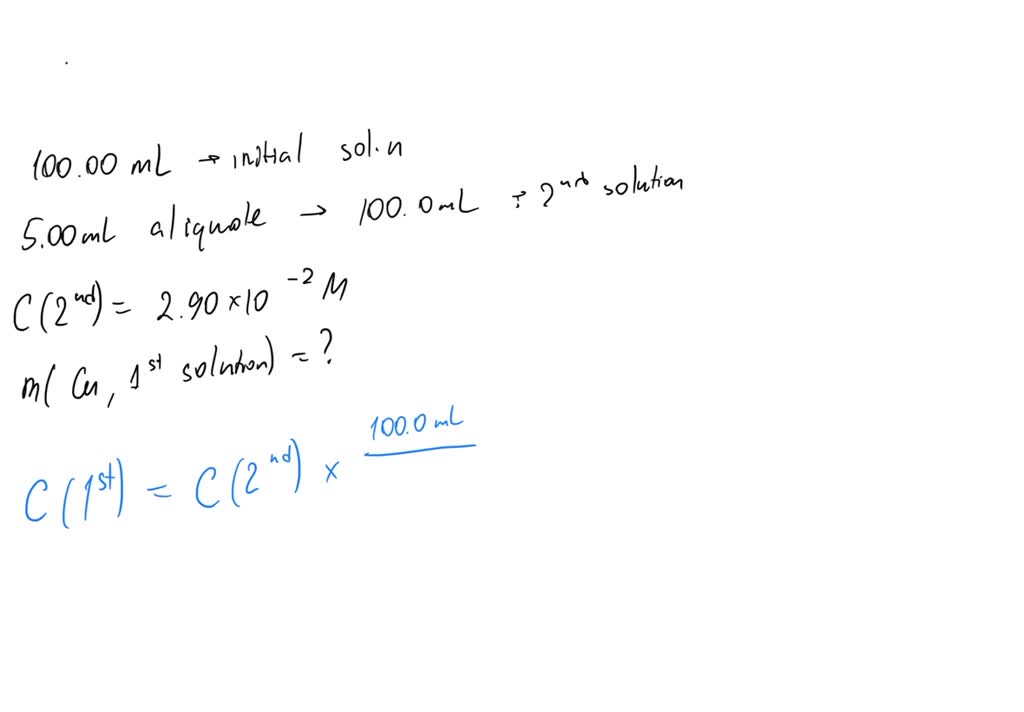 100.00 mL → initial sol.n
5.00mL aliquote → 100.0mL ÷ 2nd solution
C(2nd) = 2.90 × 10⁻² M
m( Cu, 1st solution) = ?
100.0 mL
C(1st) = C(2nd) ×